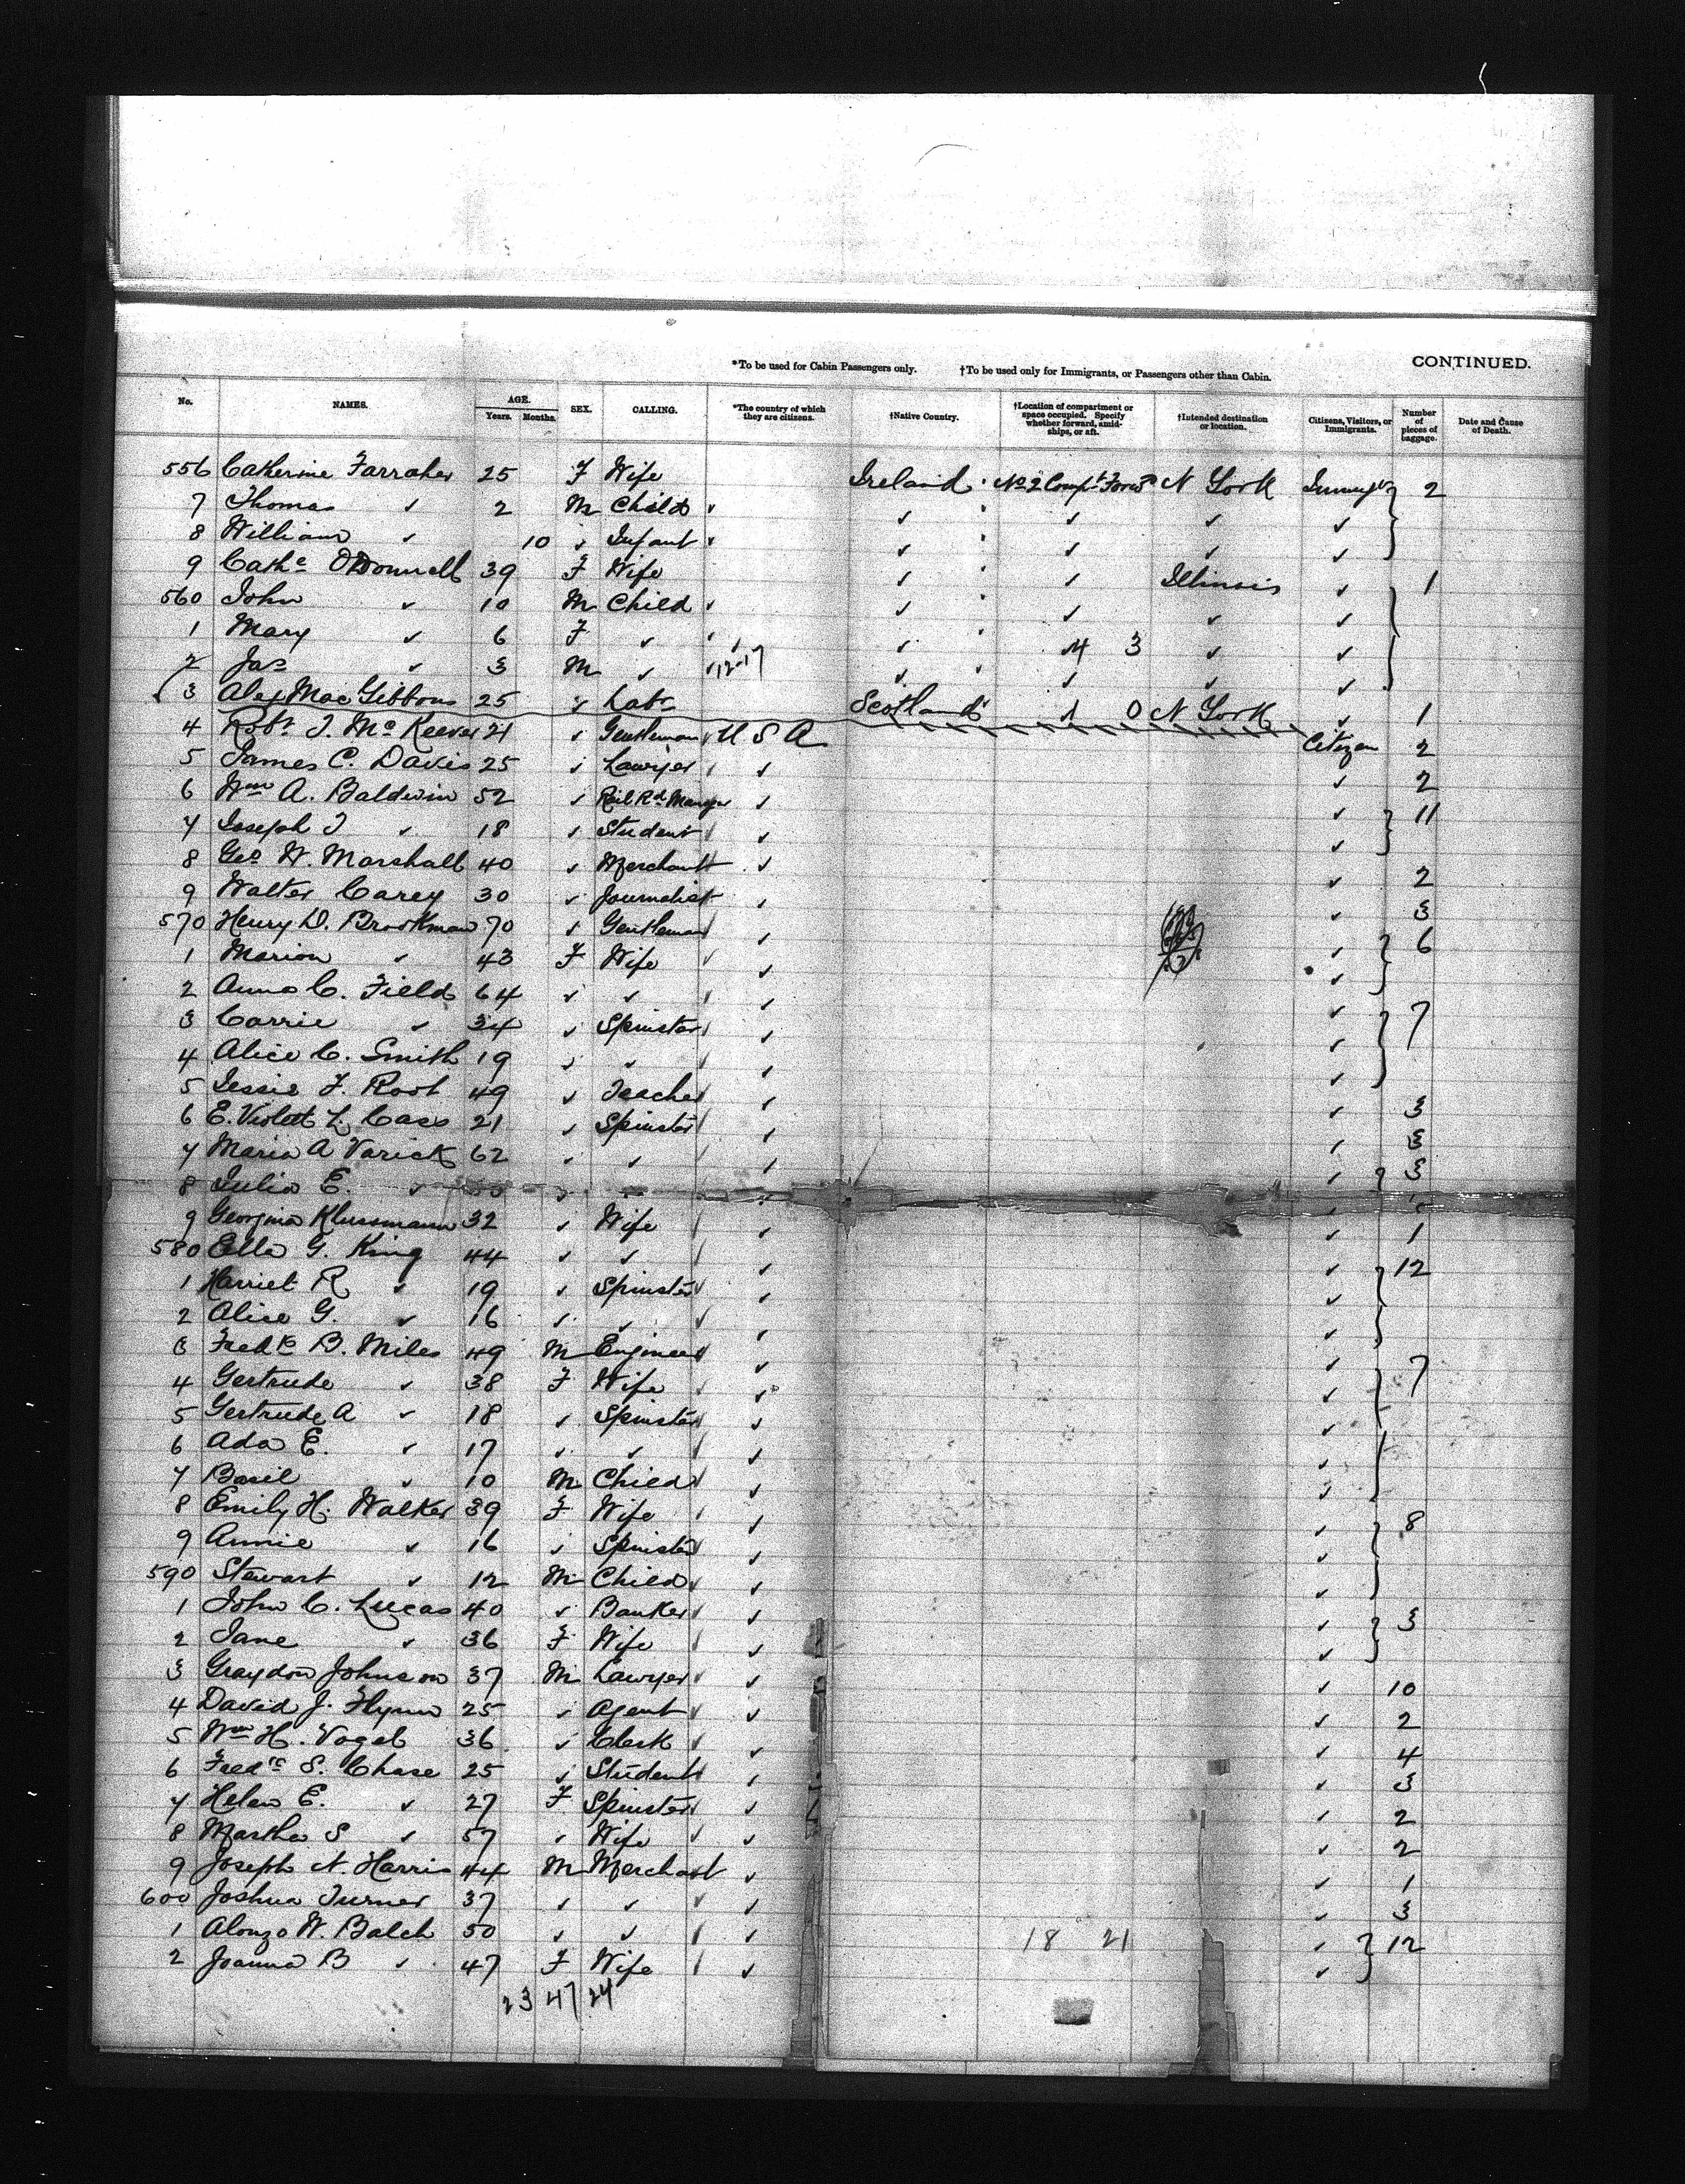 CONTINUED.
*To be used for Cabin Passengers only. †To be used only for Immigrants, or Passengers other than Cabin.
No. NAMES. AGE. Years. Months. SEX. CALLING. *The country of which they are citizens. †Native Country. †Location of compartment or space occupied. Specify whether forward, amidships, or aft. †Intended destination or location. Citizens, Visitors, or Immigrants. Number of pieces of baggage. Date and Cause of Death.
556 Catherine Farraher 25 F Wife Ireland No 2 Compt Forwd N York 2
7 Thomas ✓ 2 M Child ✓ ✓ ✓ ✓ ✓
8 William ✓ 10 ✓ Infant ✓ ✓ ✓ ✓ ✓
9 Cathe O'Donnell 39 F Wife ✓ ✓ Illinois ✓ 1
560 John ✓ 10 M Child ✓ ✓ ✓ ✓ ✓
1 Mary ✓ 6 F ✓ ✓ ✓ ✓ 4 3 ✓ ✓
2 Jas ✓ 3 M ✓ ✓ 12-17 ✓ ✓ ✓ ✓
3 Alex MacGibbon 25 ✓ Labr Scotland 1 0 N York ✓ 1
4 Robt J. McKeever 21 ✓ Gentleman U S A Citizen 2
5 James C. Davis 25 ✓ Lawyer ✓ ✓ 2
6 Wm A. Baldwin 52 ✓ Rail Rd Manager ✓ ✓ 11
7 Joseph J ✓ 18 ✓ Student ✓ ✓
8 Geo W. Marshall 40 ✓ Merchant ✓ ✓ 2
9 Walter Carey 30 ✓ Journalist ✓ ✓ 3
570 Henry D. Brookman 70 ✓ Gentleman ✓ ✓ 6
1 Marion ✓ 43 F Wife ✓ ✓
2 Anna C. Field 64 ✓ ✓ ✓ ✓ 7
3 Carrie ✓ 34 ✓ Spinster ✓ ✓
4 Alice C. Smith 19 ✓ ✓ ✓ ✓
5 Jessie F. Root 49 ✓ Teacher ✓ ✓ 3
6 E. Violet L. Cass 21 ✓ Spinster ✓ ✓ 3
7 Maria A Varick 62 ✓ ✓ ✓ ✓ 3
8 Julia E. ✓ ✓ ✓ ✓ ✓
9 Georgina Klussmann 32 ✓ Wife ✓ ✓ 1
580 Ella G. King 44 ✓ ✓ ✓ ✓ 12
1 Harriet R ✓ 19 ✓ Spinster ✓ ✓
2 Alice G. ✓ 16 ✓ ✓ ✓ ✓
3 Fredk B. Miles 49 M Engineer ✓ ✓ 7
4 Gertrude ✓ 38 F Wife ✓ ✓
5 Gertrude A ✓ 18 ✓ Spinster ✓ ✓
6 Ada E. ✓ 17 ✓ ✓ ✓ ✓
7 Basil ✓ 10 M Child ✓ ✓
8 Emily H. Walker 39 F Wife ✓ ✓ 8
9 Annie ✓ 16 ✓ Spinster ✓ ✓
590 Stewart ✓ 12 M Child ✓ ✓
1 John C. Lucas 40 ✓ Banker ✓ ✓ 3
2 Jane ✓ 36 F Wife ✓ ✓
3 Graydon Johnson 37 M Lawyer ✓ ✓ 10
4 David J. Flynn 25 ✓ Agent ✓ ✓ 2
5 Wm H. Vogel 36 ✓ Clerk ✓ ✓ 4
6 Fredc S. Chase 25 ✓ Student ✓ ✓ 3
7 Helen E. ✓ 27 F Spinster ✓ ✓ 2
8 Martha S ✓ 57 ✓ Wife ✓ ✓ 2
9 Joseph N Harris 44 M Merchant ✓ ✓ 1
600 Joshua Turner 37 ✓ ✓ ✓ ✓ 3
1 Alonzo W. Balch 50 ✓ ✓ ✓ 18 21 ✓ 12
2 Joanna B ✓ 47 F Wife ✓ ✓
23 47 24